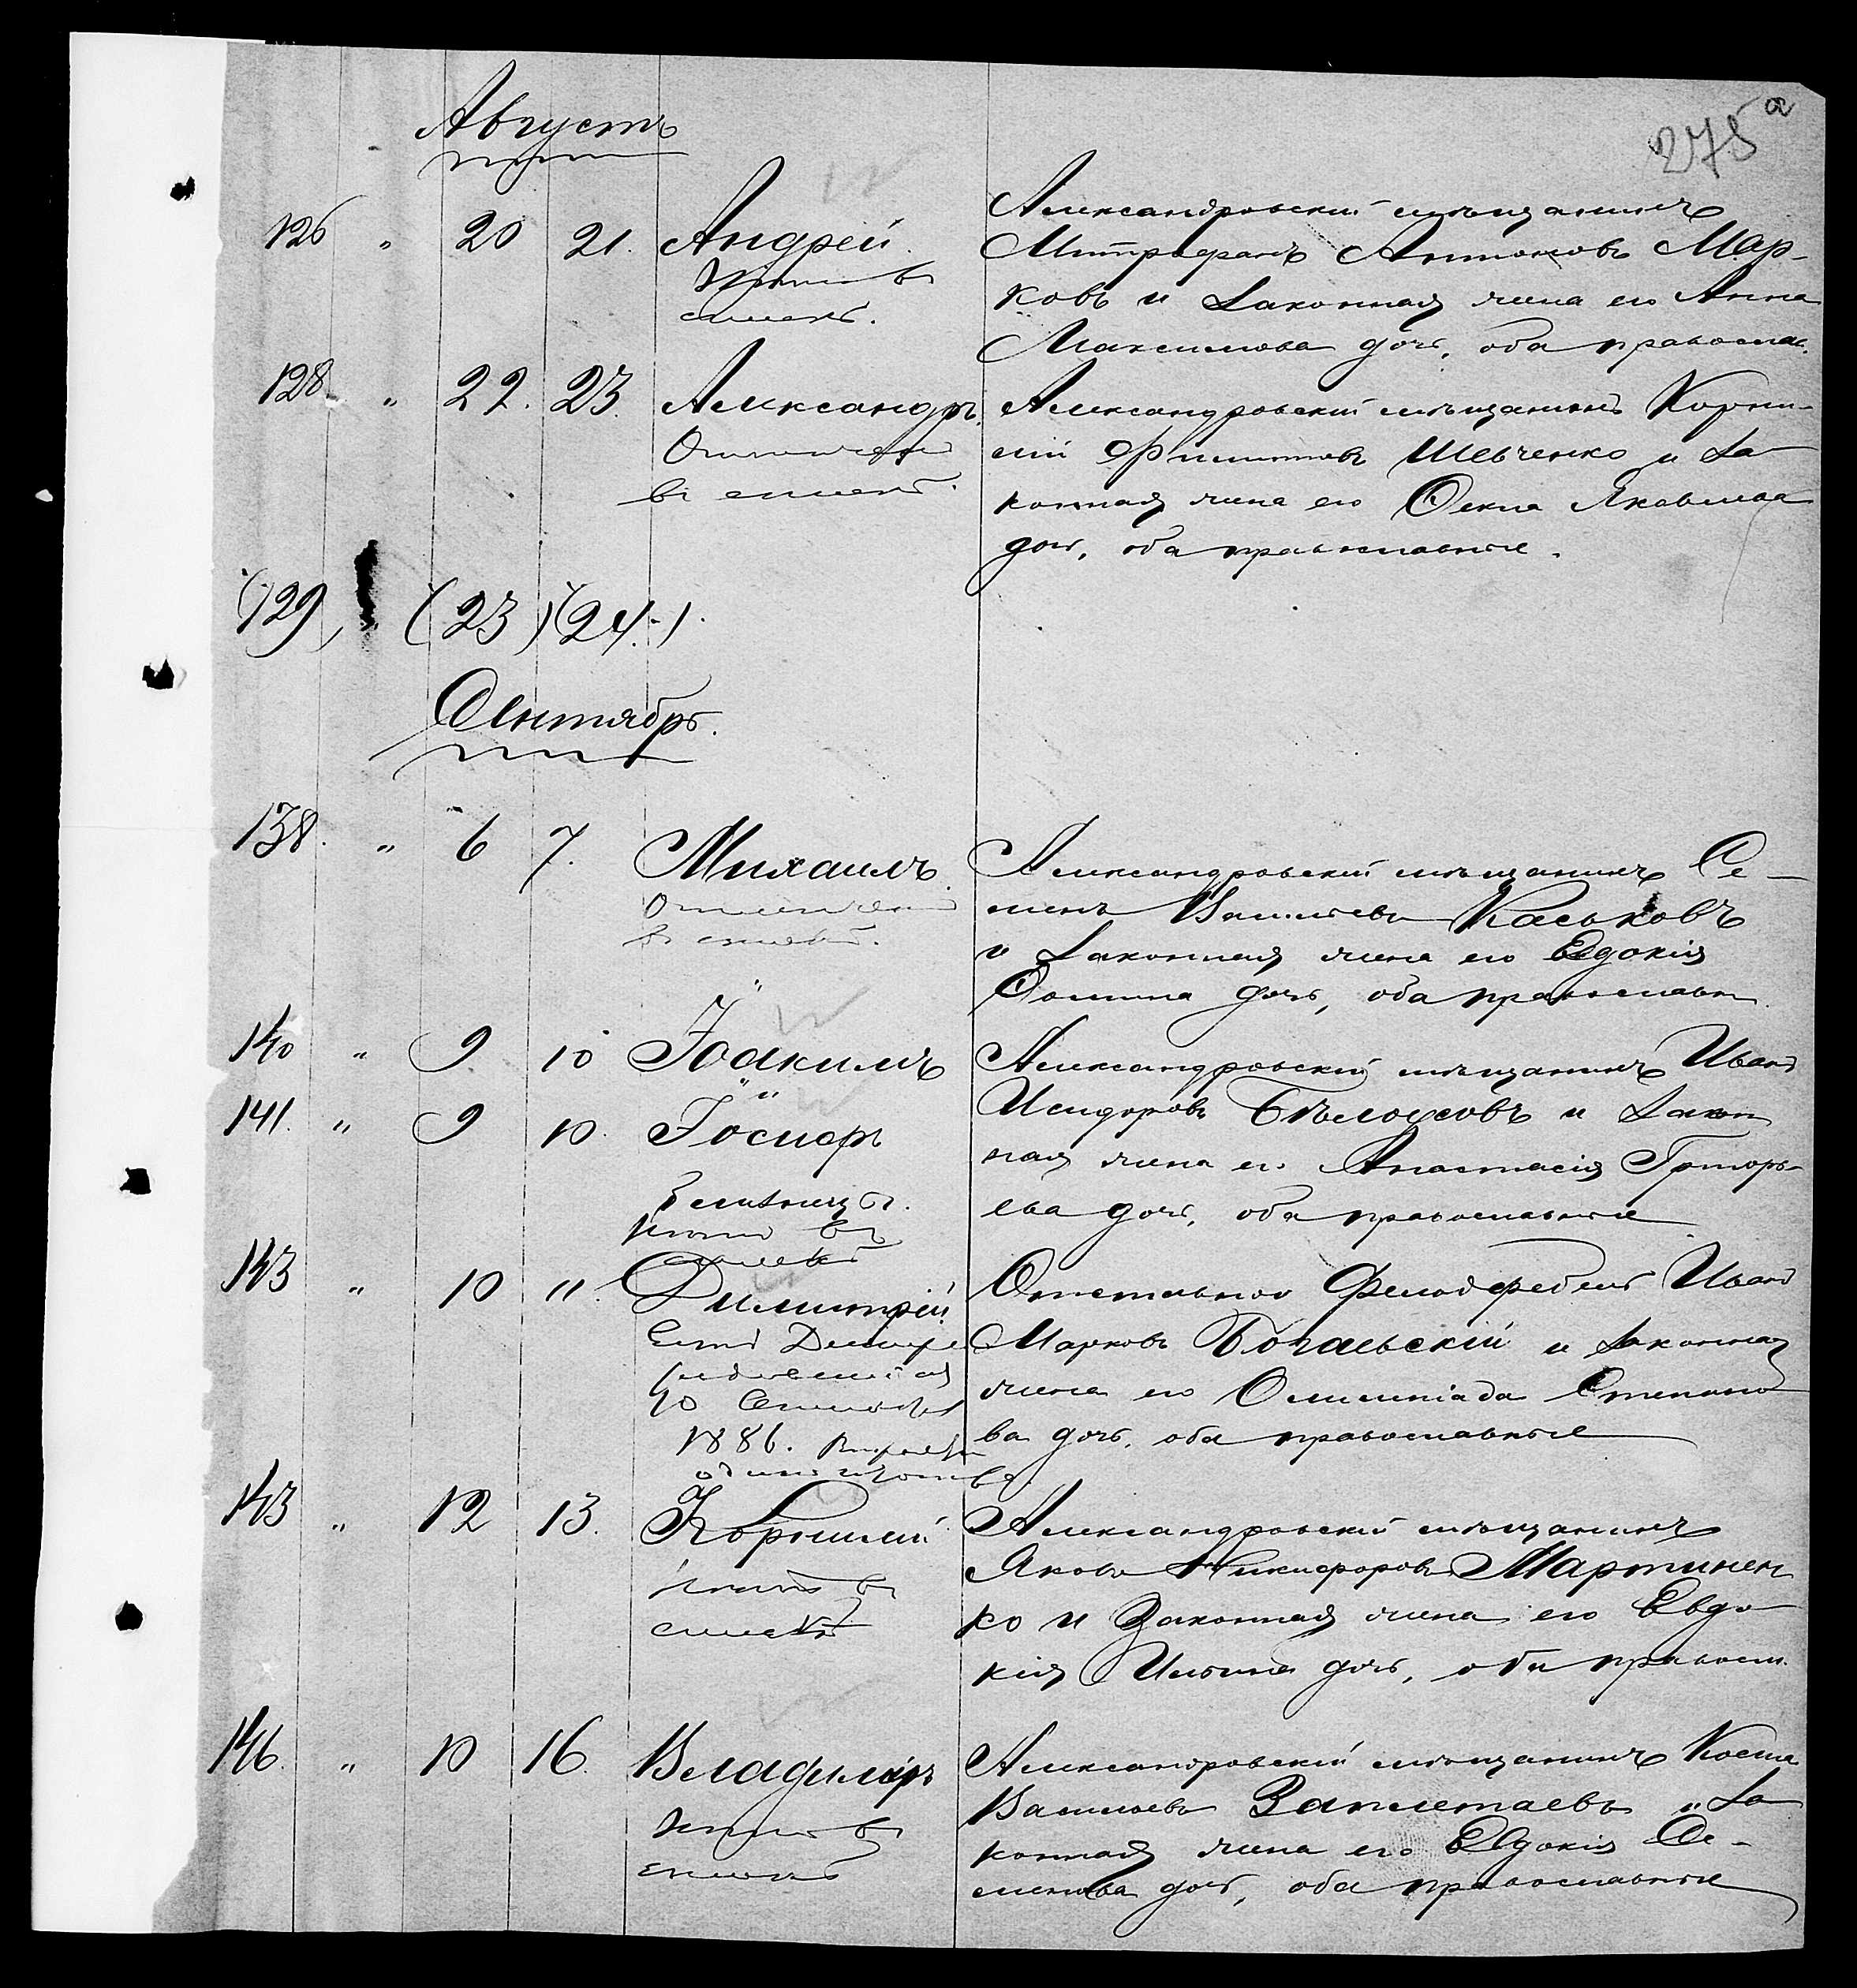 275 а
Августъ
126 " 20 21. Андрей.
Александровскій мѣщанинъ
Митрофанъ Антоновъ Мар-
ковъ и законная жена его Анна
Максимова дочь, оба православ.
128. " 22. 23. Александръ.
Отмеченъ
въ списк.
Александровскій мѣщанинъ Корни-
лій Филиповъ Шевченко и за-
конная жена его Фекла Яковлева
дочь, оба православные.
(129) (23) (24.)
Сентябрь.
138. " 6 7. Михаилъ.
Отмеченъ
въ списк.
Александровскій мѣщанинъ Се-
менъ Васильевъ Каськовъ
и законная жена его Евдокія
Фомина дочь, оба православн.
140 " 9 10 Іоакимъ
141. " 9 10. Іосифъ
Близнецы.
въ
Александровскій мѣщанинъ Иванъ
Исидоровъ Бѣлоусовъ и закон
ная жена его Анастасія Григорь-
ева дочь, оба православные
143 " 10 11. Димитрій.
10 Сентября
1886.
Отставной Фельдфебель Иванъ
Марковъ Богаевскій и законная
жена его Олимпіада Степано
ва дочь, оба православные
143 " 12 13. Корнилій
въ
Александровскій мѣщанинъ
Яковъ Никифоровъ Мартинен
ко и законная жена его Евдо
кія Ильина дочь, оба правосл.
146. " 10 16. Владиміръ
въ
Александровскій мѣщанинъ Косма
Васильевъ Заплетаевъ и за
конная жена его Евдокія Се-
менова дочь, оба православные